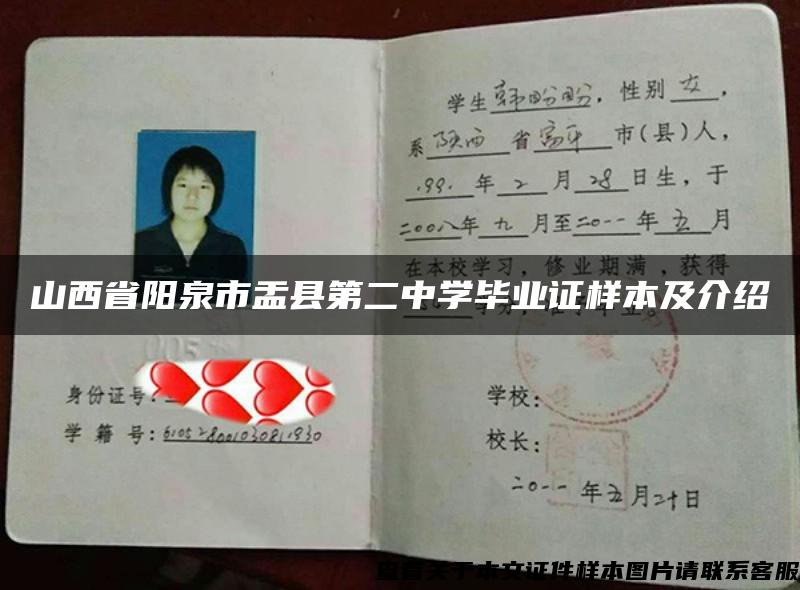 学生韩盼盼，性别女，
系陕西省富平市(县)人，
1991年2月28日生，于
二00八年九月至二0一一年五月
在本校学习，修业期满，获得
山西省阳泉市盂县第二中学毕业证样本及介绍
身份证号：
学籍号：610528001030811930
学校：
校长：
二0一一年五月二十日
查看关于本文证件样本图片请联系客服